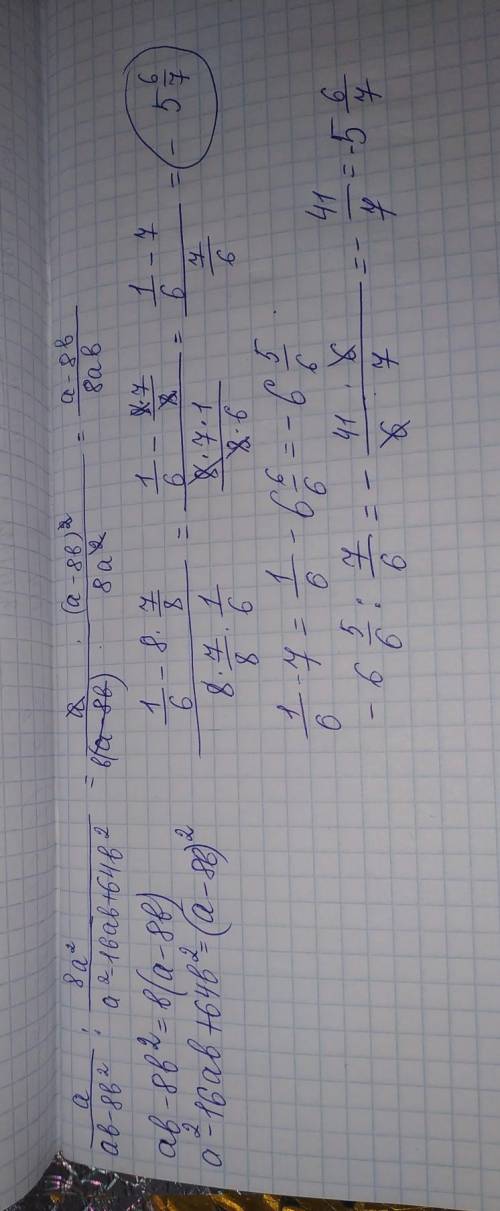 a/(ab-8b²) : 8a²/(a²-16ab+64b²) = a/(b(a-8b)) · (a-8b)²/(8a²) = (a-8b)/(8ab)
ab-8b²=b(a-8b)
a²-16ab+64b²=(a-8b)²
(1/6 - 8·7/8)/(8·7/8·1/6) = (1/6 - 8·7/8)/((8·7·1)/(8·6)) = (1/6 - 7)/(7/6) = - 5 6/7
1/6 - 7 = 1/6 - 6 6/6 = - 6 5/6
- 6 5/6 : 7/6 = - (41 · 6)/(6 · 7) = - 41/7 = -5 6/7